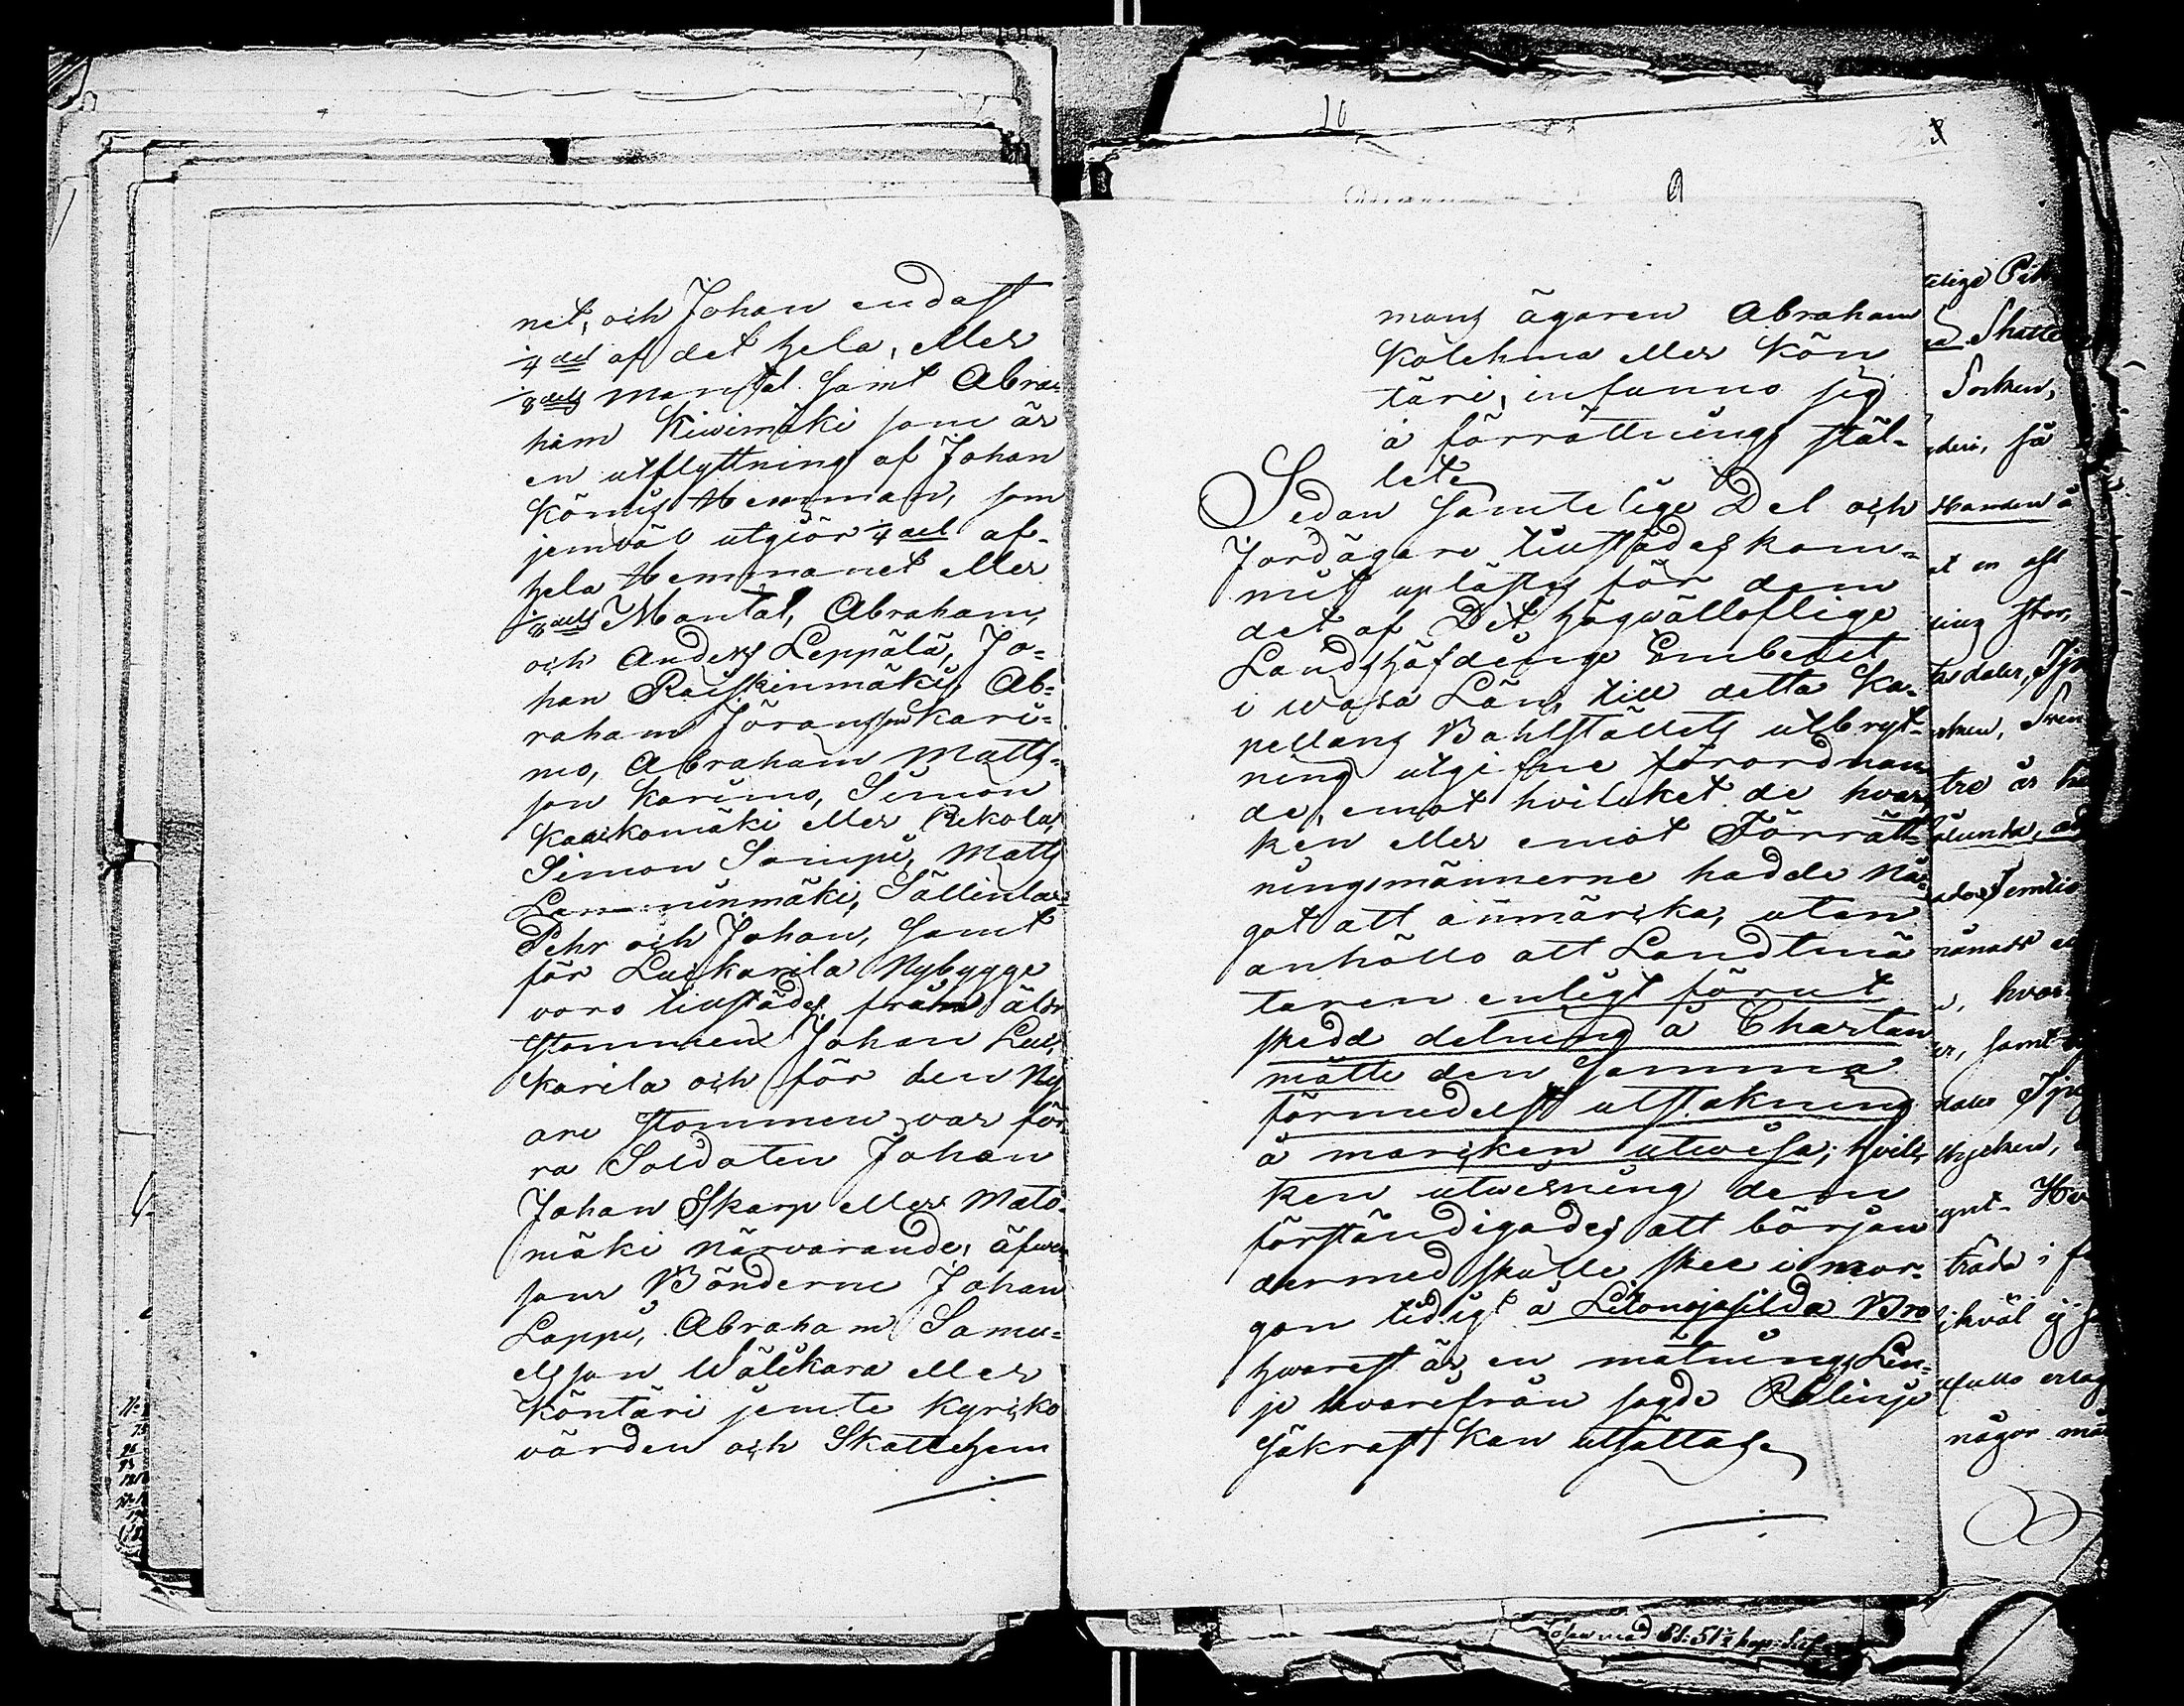 net, och Johan endast
1/4 del af det hela, eller
1/8 dels mantal samt Abra-
ham Kiwimäki som är
en utflyttning af Johan
Kömis Hemman, som
jemväl utgiör 1/4 del af
hela Hemmanet eller
1/8 dels Mantal, Abraham,
och Anders Leppälä, Jo-
han Raiskinmäki, Ab-
raham Jöransson Kari-
mo, Abraham Matts-
son Karimo, Simon
Kaukomäki eller Rekola,
Simon Sompi, Matts
Sällinlar
Pehr och Johan, samt
för Luikarila Nybygge
voro tillstädes från äldr
stommen Johan Lui-
karila och för den Ny
are stommen var för-
ra Soldaten Johan
Johan Skarp eller Mato-
mäki närvarande, äfwen
som Bönderne Johan
Lappi, Abraham Samu-
elsson Wälikara eller
Köntäri jemte Kyrko
värden och Skattehem
10
9
mans ägaren Abraham
Kölehma eller Kön
täri, infunno sig
å förrättnings stäl-
let.
Sedan samtelige Del och
Jordägare tillstädes kom-
mit uplästes för dem
det af Det högwälloflige
Landshöfdinge Embetet
i Wasa Län, till detta Ka-
pellans Bohlställets utbryt-
ning utgifne förordnan
de, emot hvilcket de hvar-
ken eller emot Förrätt-
ningsmännerne hadde nå-
got att anmärcka, utan
anhöllo att Landtmä
taren enligt förut
skedd delning å Chartan
måtte den samma
förmedelst utstakning
å marcken utwisa; hvilc
ken utwisning dem
förständigades att början
dermed skulle skee i mor-
gon tidigt å Litonojasilda Bro
hwarest är en mätnings Lin-
je hvarefrån sagde Rålinje
säkrast kan utsättas.
Skatte
Socken,
så
Hamden å
at en
daler,
tre är
samt
hvar
daler
stycken,
träda i
någor